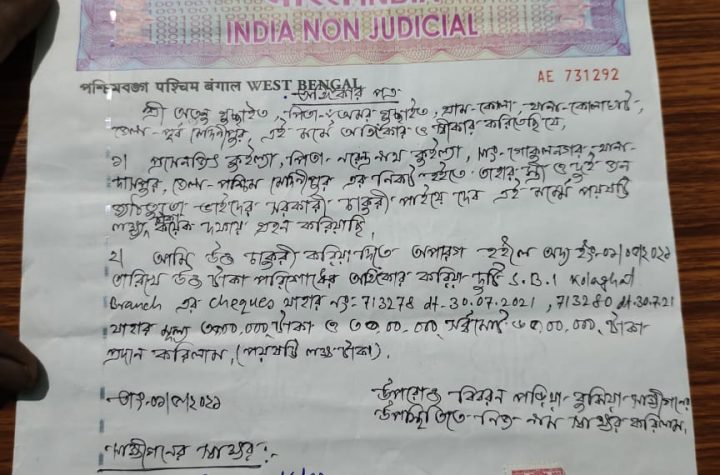 भारत INDIA
INDIA NON JUDICIAL
পশ্চিমবঙ্গ पश्चिम बंगाल WEST BENGAL
AE 731292
অঙ্গিকার পত্র
শ্রী অতনু গুছাইত, পিতা- অমর গুছাইত, গ্রাম-কোলা থানা-কোলাঘাট,
জেলা- পূর্ব মেদিনীপুর, এই মর্মে অঙ্গিকার ও স্বীকার করিতেছি যে,
১) প্রসেনজিৎ কুইল্যা, পিতা- কুইল্যা, সাং-গোকুলনগর, থানা-
দাসপুর, জেলা- পশ্চিম মেদিনীপুর এর নিকট হইতে তাহার স্ত্রী ও দুই জন
ভাইদের সরকারী চাকুরী পাইয়ে দেব এই মর্মে পয়ষট্টি
লক্ষ টাকা কয়েক দফায় গ্রহন করিয়াছি,
২) আমি উক্ত চাকুরী করিয়া দিতে অপারগ হইলে অদ্য ইং-
তারিখে উক্ত টাকা পরিশোধের অঙ্গিকার করিয়া দুটি S.B.I Kolaghat
Branch এর Cheques যাহার নং: 713278 dt-30.07.2021, 713280 dt.30.7.21
যাহার মূল্য টাকা ও সর্বমোট টাকা
প্রদান করিলাম, (পয়ষট্টি লক্ষ টাকা).
উপরোক্ত বিবরন পড়িয়া- বুঝিয়া- সাক্ষীগনের
তাং-
উপস্থিতিতে নিজ নাম স্বাক্ষর করিলাম,
সাক্ষীগনের স্বাক্ষর:-